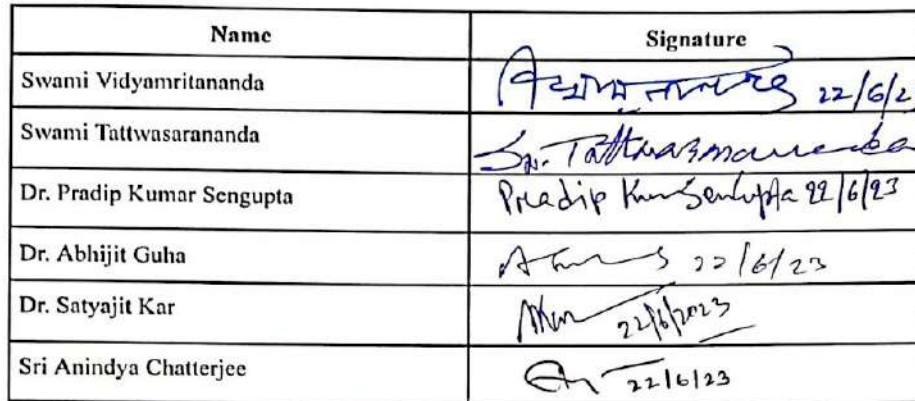 Name Signature
Swami Vidyamritananda 22/6/2
Swami Tattwasarananda Sw. Tattwasarananda
Dr. Pradip Kumar Sengupta Pradip Kum Sengupta 22/6/23
Dr. Abhijit Guha 22/6/23
Dr. Satyajit Kar 22/6/2023
Sri Anindya Chatterjee 22/6/23